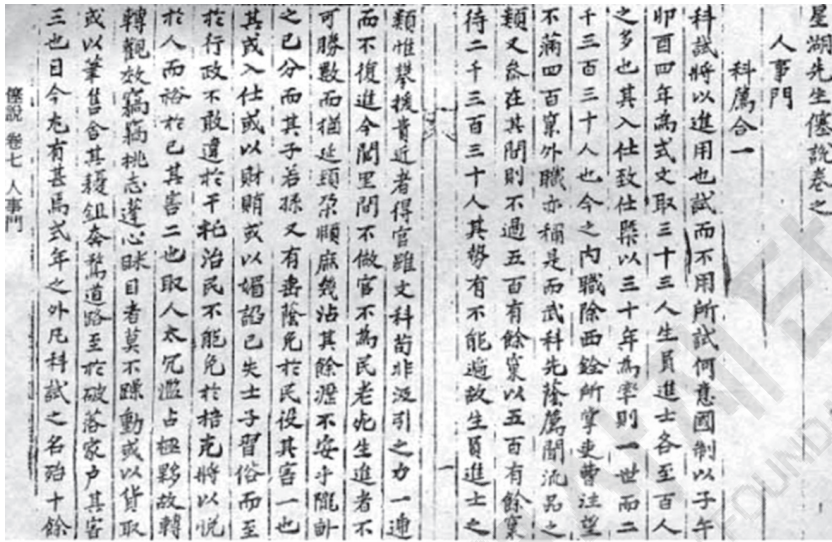 星湖先生僿說卷之
人事門
科薦合一
科試將以進用也試而不用所試何意國制以子午
卯酉四年為式文取三十三人生員進士各至百人
之多也其入仕致仕槩以三十年為率則一世而二
千三百三十人也今之內職除西銓所掌吏曹注望
不滿四百窠外職亦稱是而武科先蔭薦間流品之
類又叅在其間則不過五百有餘窠以五百有餘窠
待二千三百三十人其勢有不能遍故生員進士之
類惟攀援貴近者得官雖文科苟非汲引之力一連
而不復進今閭里間不做官不為民老死生進者不
可勝數而猶延頸朶頤庶幾沾其餘瀝不安乎隴畝
之已分而其子若孫又有壽蔭免於民役其害一也
其或入仕或以財賄或以媚諂已失士子習俗而至
於行政不敢違於干牝治民不能免於掊克將以悅
於人而裕於已其害二也取人太冗濫占極夥故轉
轉觀效竊竊挑志蓬心眯目者莫不躁動或以貨取
或以筆售舍其耰鉏奔騖道路至於破落家戶其害
三也日今尢有甚焉式年之外凡科試之名殆十餘
僿說 卷七 人事門
FOUNDA